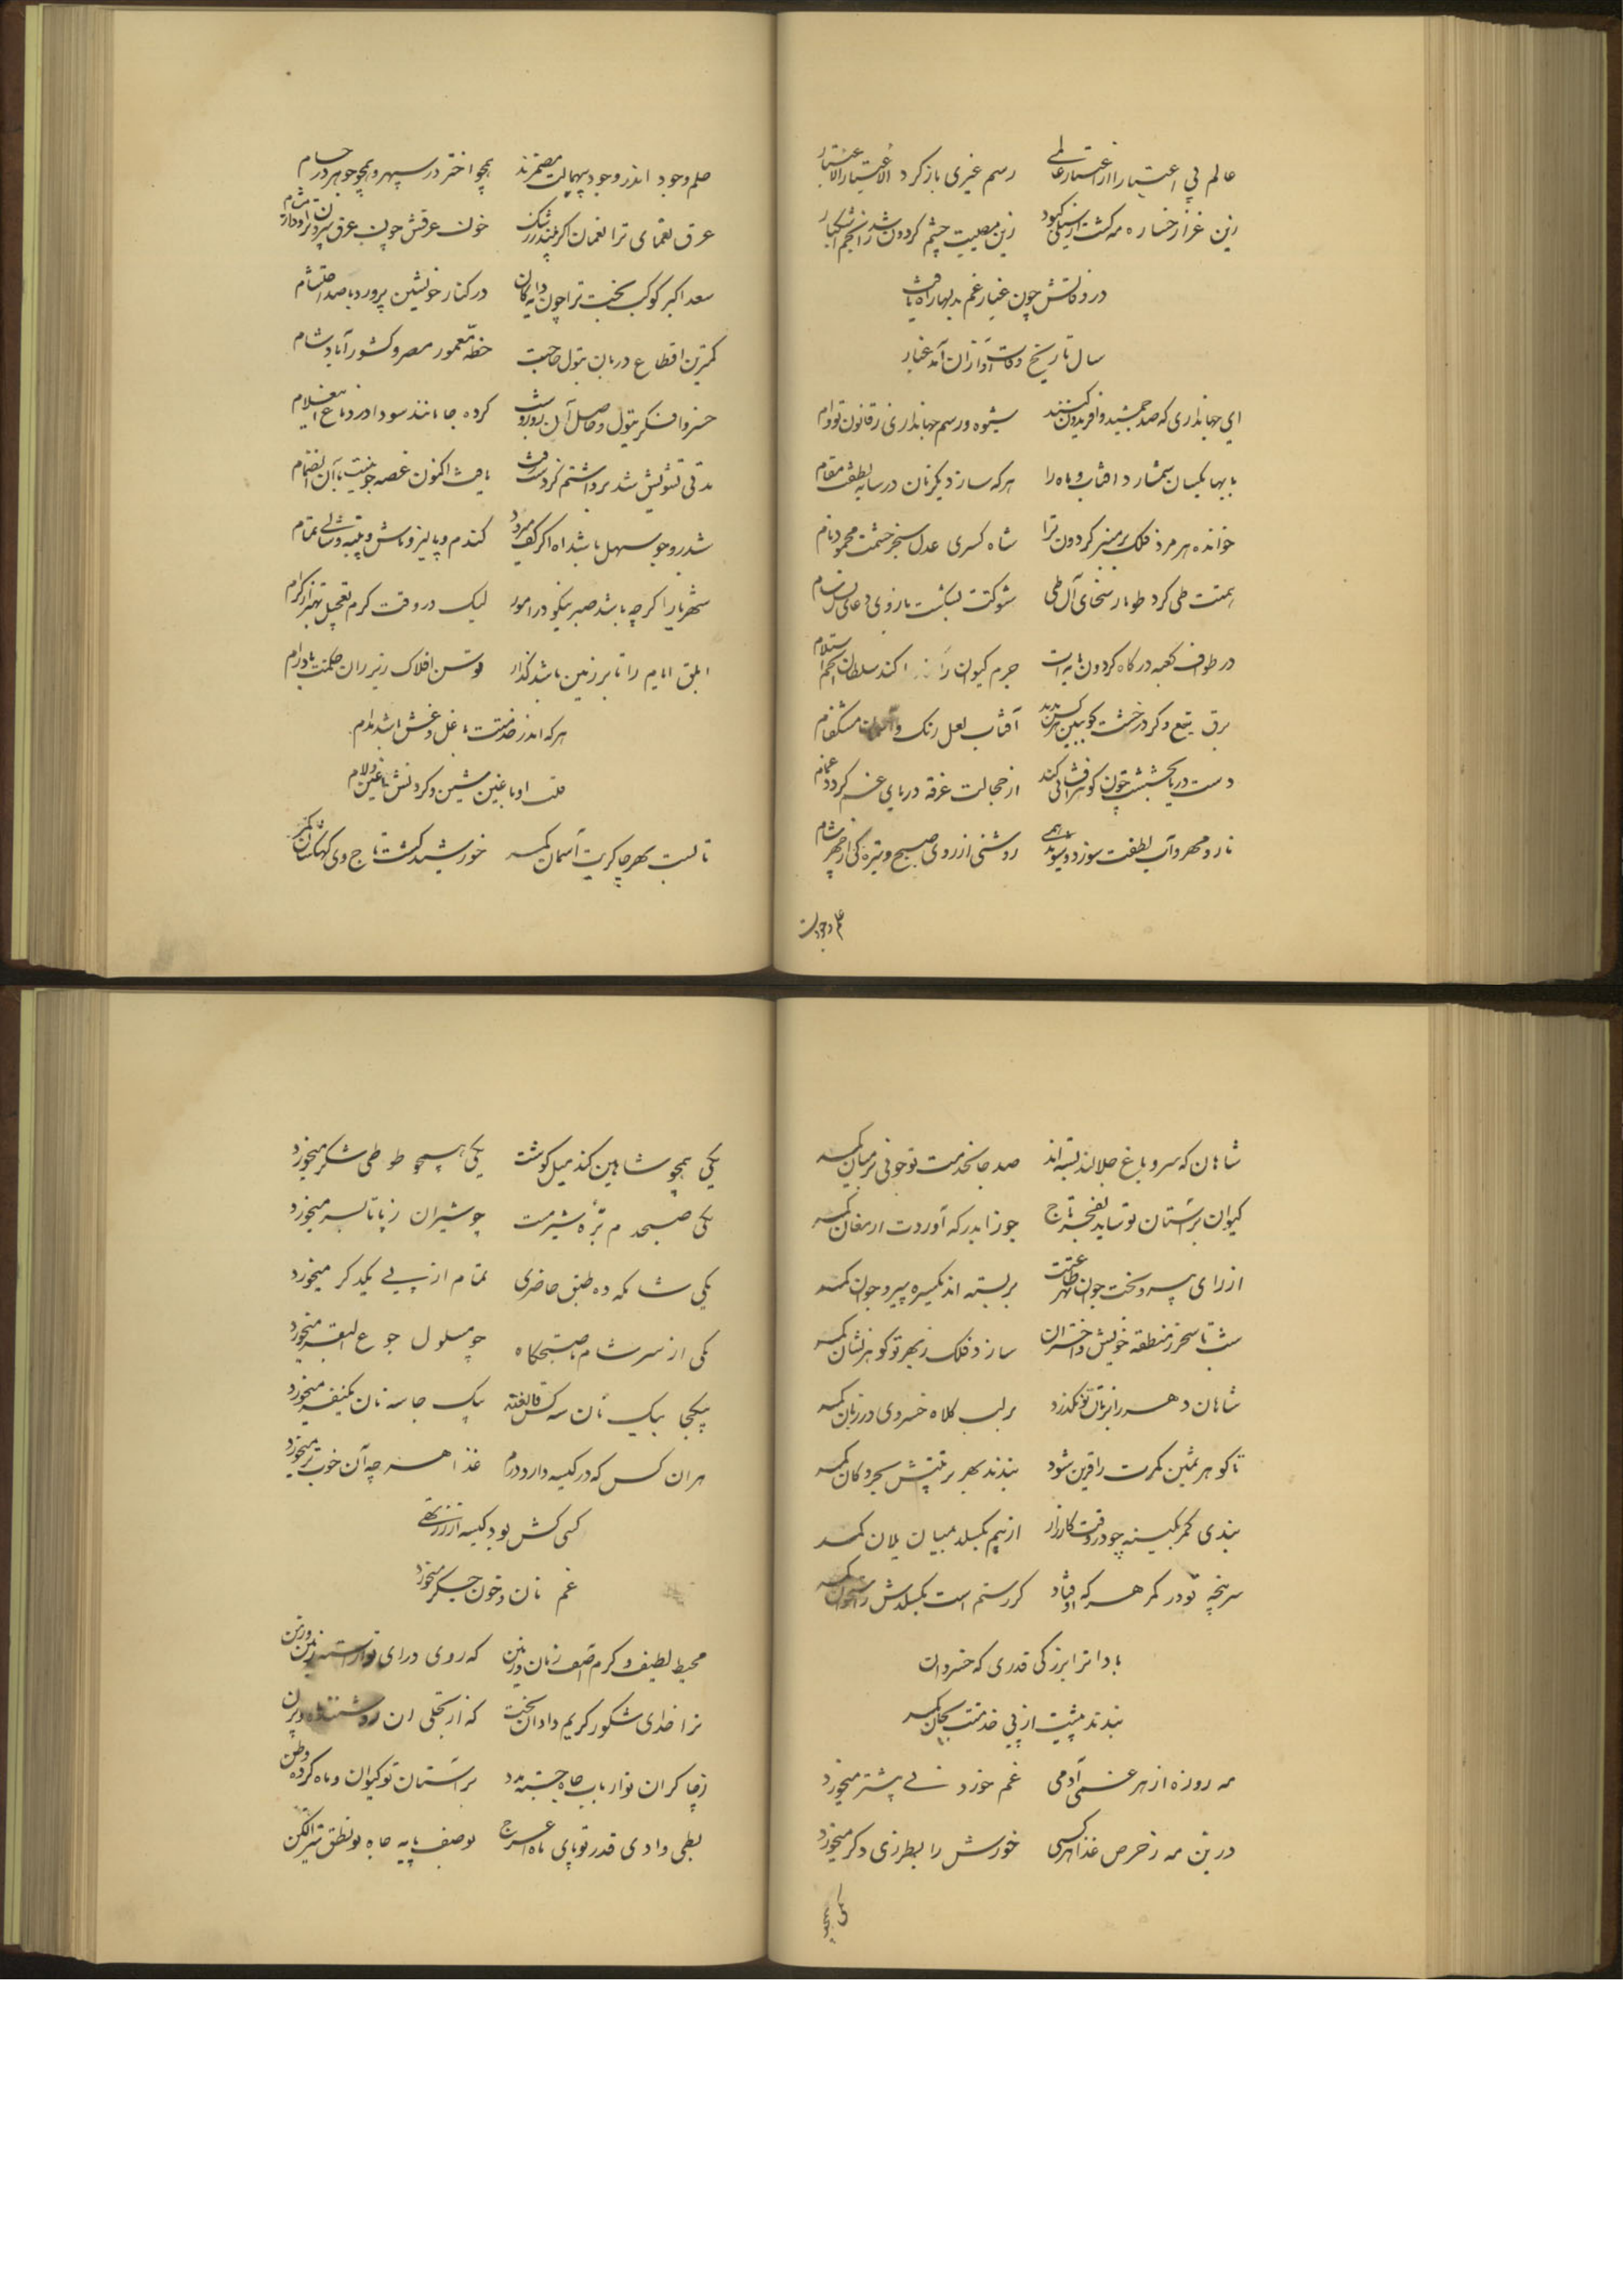 عالم بی اعتبارا از اعتبار عالمی رسم غیری باز کرد الاعتبار الاعتبار
زین عزا رخساره مه کشت از سیلی کبود زین مصیبت چشم کردون شد ز انجم اشکبار
در وفاتش چون غبار غم بدلها راه یافت
سال تاریخ وفات او ازان آمد غبار
ای جهانداری که صد جمشید و افریدون کنند شیوه و رسم جهانداری ز قانون تو وام
با بها یکسان شمارد افتاب و ماه را هر که سازد یکزمان در سایه لطفت مقام
خوانده هر مزد فلک بر منبر کردون ترا شاه کسری عدل سنجر حشمت محمود نام
همتت طی کرد طومار سخای آل طی شوکتت بشکست بازوی
در طواف کعبه درگاه کردون پایه ات جرم کیوان را کند سلطان انجم استلام
برق تیغ و کرد رخشت کو ببین هر کس ندید آفتاب لعل رنک و آسمان مشکفام
دست دریا بخششت چون کوهر افشانی کند از خجالت غرقه دریای عرق کردد غمام
نار و مهر و آب لطفت سوزد و شوید همی روشنی از روی صبح و تیره کی از چهر شام
حلم وجود اندر وجود بیهمالت مضمرند همچو اختر در سپهر و همچو جوهر در حسام
عرق نعمای ترا نعمان اکر بیند ز رشک خون عرقش چون عرق بیرون تراود از مشام
سعد اکبر کوکب بخت ترا چون دایه کان در کنار خویشتن پرورد با صد احتشام
کمترین اقطاع دربان تیول حاجبت خطه معمور مصر و کشور آباد شام
خسروا فکر تیول و حاصل آن روز و شب کرده جا مانند سودا در دماغ این غلام
مدتی تشویش شد برداشتم کردست رفت یافت اکنون غصه جو نیست با آن انضمام
شد درو جو سهل باشد اه اگر کف میرود کندم و پالیز و ماش و پنبه و شالی تمام
شهریارا کرچه باشد صبر نیکو در امور لیک در وقت کرم تعجیل بهتر از کرام
ابلق ایام را تا بر زمین باشد کذار توسن افلاک زیر ران حکمت باد رام
هر که اندر خدمتت با غل و غش باشد مدام
قلب او با غین و شین و کردنش با غین و لام
تا بست بهر چاکریت آسمان کمر خورشید کشت تاج وی و کهکشان کمر
شاهان که سرو باغ جلالند بسته اند صد جا بخدمت تو چو نی بر میان کمر
کیوان بر آستان تو ساید بفخر تاج جوزا بدرکه آوردت ارمغان کمر
از رای پیر و بخت جوان بهر طاعتت بربسته اند یکسره پیر و جوان کمر
شب تا سحر ز منطقه خویش و اختران سازد فلک ز بهر تو کوهر نشان کمر
شاهان دهر را بزبان تو نکذرد بر لب کلاه خسروی و در زبان کمر
تا کوهر ثمین کمرت را قرین شود بندند بهر تربیتش بحر و کان کمر
بندی کمر بکینه چو در وقت کارزار از بیم بکسلد بمیان یلان کمر
سرپنجه تو در کمر هر که اوفتاد کر رستم است بکسلدش ز استخوان کمر
بادا ترا بزرگی قدری که خسروان
بندند پیشت از پی خدمت بجان کمر
مه روزه از هر غمی آدمی غم خورد نی بیشتر میخورد
درین مه ز حرص غذا هر کسی خورش را بطرزی دکر میخورد
یکی همچو شاهین کند میل کوشت یکی همچو طوطی شکر میخورد
یکی صبحدم بره شیر مست چو شیران ز پا تا بسر میخورد
یکی شامکه ده طبق حاضری تمام از پی یکدکر میخورد
یکی از سر شام تا صبحکاه چو مسلول جوع البقر میخورد
بیکجا بیک نان سه کس قالغنه یک جا سه نان یکنفر میخورد
هران کس که در کیسه دارد درم غذا هر چه آن خوب تر میخورد
کسی کش بود کیسه از زر تهی
غم نان و خون جکر میخورد
محیط لطف و کرم آصف زمان و زمین که روی و رای تو آراسته زمین و زمن
ترا خدای شکور کریم داد آن بخت که از تجلی ان
ز چاکران تو ارباب جاه جسته مدد بر آستان تو کیوان و ماه کرده وطن
بطی وادی قدر تو پای ماه اعرج بوصف پایه جاه تو نطق تیر الکن